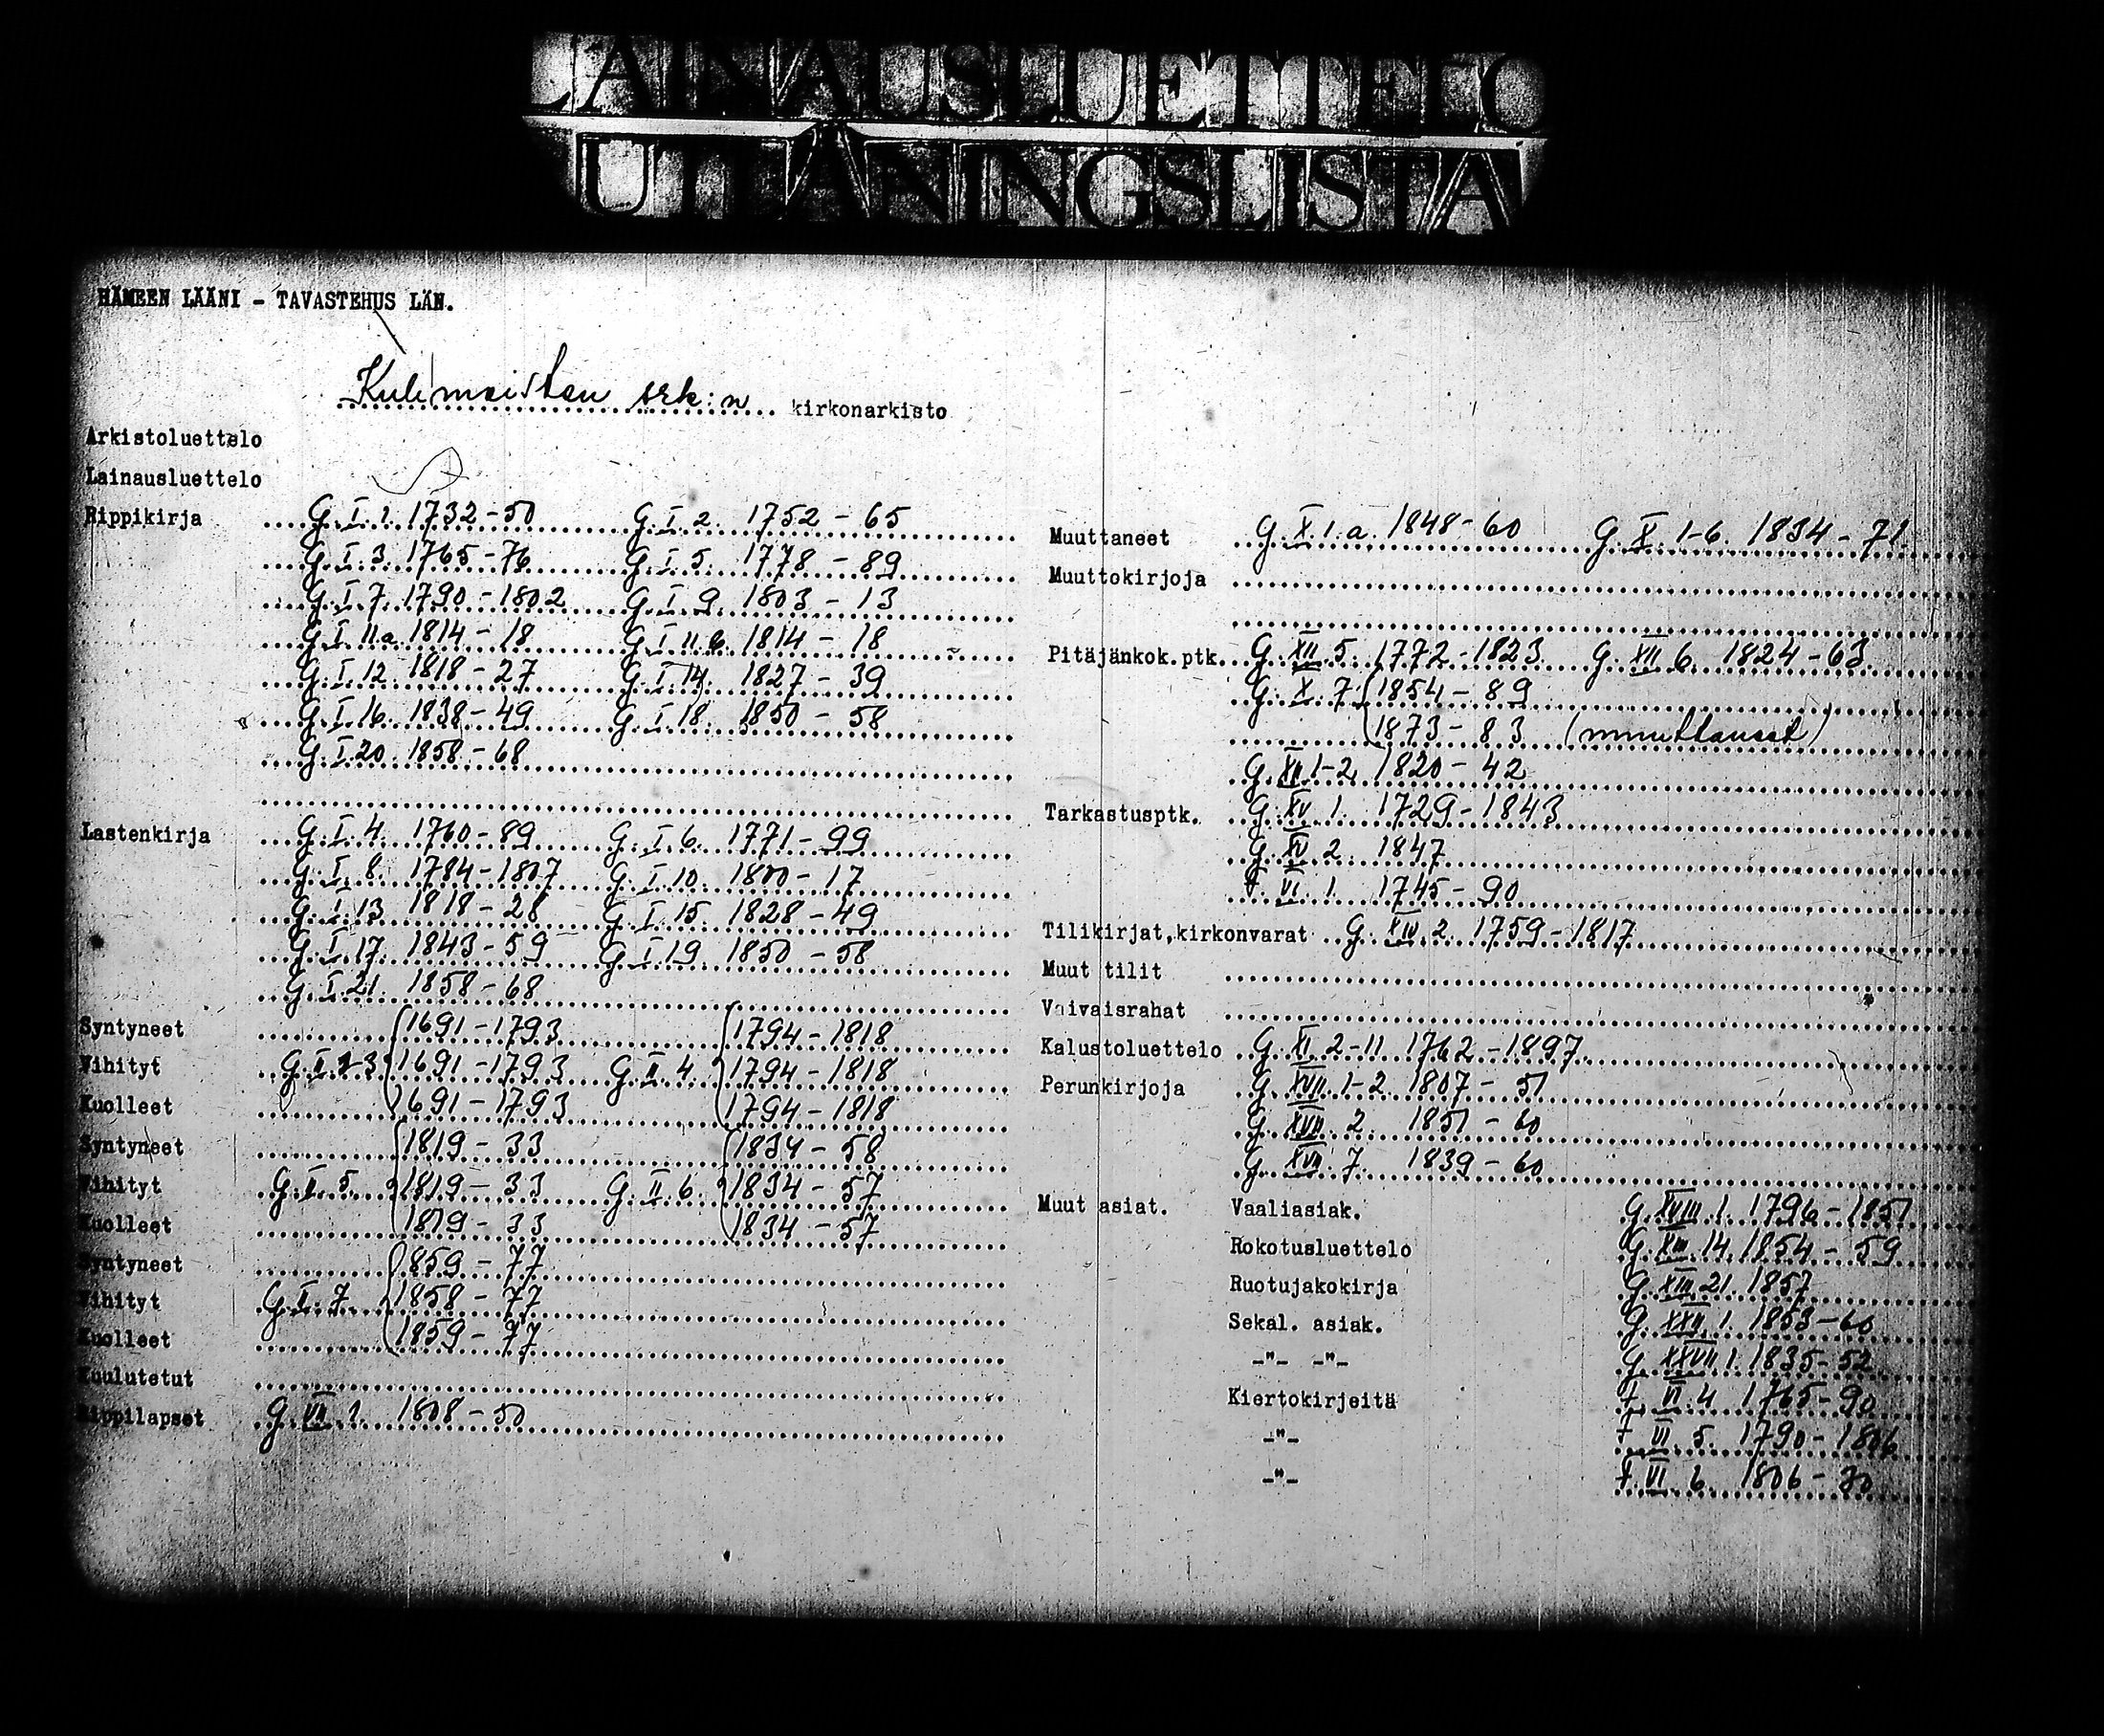 LAINAUSLUETTELO
UTLÅNINGSLISTA
HÄMEEN LÄÄNI - TAVASTEHUS LÄN.
srk:n kirkonarkisto
Arkistoluettelo
Lainausluettelo
Rippikirja G. I. 1. 1732-50 G. I. 2. 1752-65
G. I. 3. 1765-76 G. I. 5. 1778-89
G. I. 7. 1790-1802 G. I. 9. 1803-13
G. I. 11a. 1814-18 G. I. 11b. 1814-18
G. I. 12. 1818-27 G. I. 14. 1827-39
G. I. 16. 1838-49 G. I. 18. 1850-58
G. I. 20. 1858-68
Lastenkirja G. I. 4. 1760-89 G. I. 6. 1771-99
G. I. 8. 1784-1807 G. I. 10. 1800-17
G. I. 13. 1818-28 G. I. 15. 1828-49
G. I. 17. 1843-59 G. I. 19. 1850-58
G. I. 21. 1858-68
Syntyneet 1691-1793 1794-1818
Vihityt G. II. 1-3 1691-1793 G. II. 4. 1794-1818
Kuolleet 1691-1793 1794-1818
Syntyneet 1819-33 1834-58
Vihityt G. II. 5. 1819-33 G. II. 6. 1834-57
Kuolleet 1819-33 1834-57
Syntyneet 1859-77
Vihityt G. II. 7. 1858-77
Kuolleet 1859-77
Kuulutetut
Rippilapset G. VII. 1. 1808-50
Muuttaneet G. X. 1. a. 1848-60 G. X. 1-6. 1834-71
Muuttokirjoja
Pitäjänkok.ptk. G. XII. 5. 1772-1823. G. XII. 6. 1824-63.
G. X. 7. 1854-89
1873-83 (muuttaneet)
G. XII. 1-2. 1820-42
Tarkastusptk. G. XV. 1. 1729-1843
G. XV. 2. 1847
F. VI. 1. 1745-90
Tilikirjat,kirkonvarat G. XIV. 2. 1759-1817
Muut tilit
Vaivaisrahat
Kalustoluettelo G. XI. 2-11 1762-1897.
Perunkirjoja G. XVII. 1-2. 1807-51
G. XVII. 2. 1851-60
G. XVII. 7. 1839-60
Muut asiat. Vaaliasiak. G. XVIII. 1. 1796-1851
Rokotusluettelo G. XIII. 14. 1854-59
Ruotujakokirja G. XIII. 21. 1857
Sekal. asiak. G. XXII. 1. 1853-60
-"- -"- G. XXVII. 1. 1835-52
Kiertokirjeitä F. VI. 4. 1765-90
-"- F. VI. 5. 1790-1806
-"- F. VI. 6. 1806-20